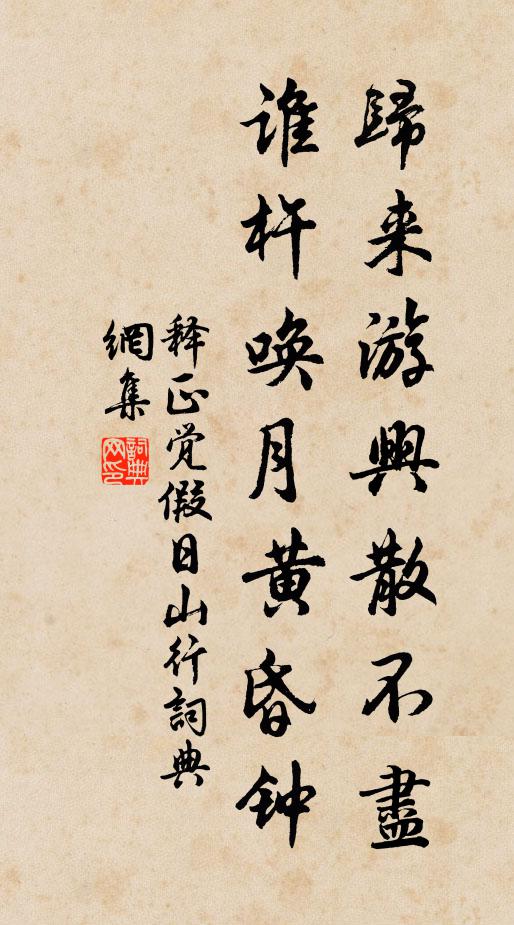 歸来游興散不盡
誰杵唤月黄昏钟
释正觉假日山行詞典
網集
詞典網印